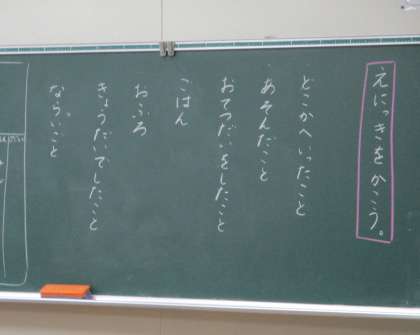 えにっきをかこう。
・どこかへいったこと
・あそんだこと
おてつだいをしたこと
ごはん
おふろ
きょうだいでしたこと
ならいごと